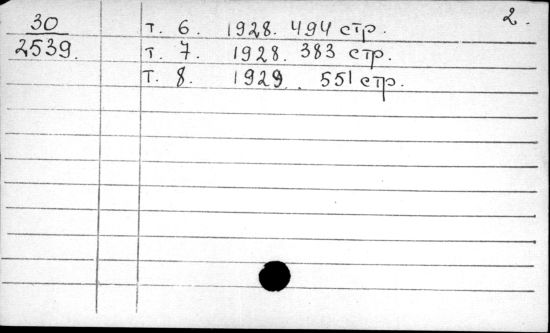 2.
30
2539.
т. 6. 1928. 494 стр.
т. 7. 1928. 383 стр.
т. 8. 1929. 551 стр.